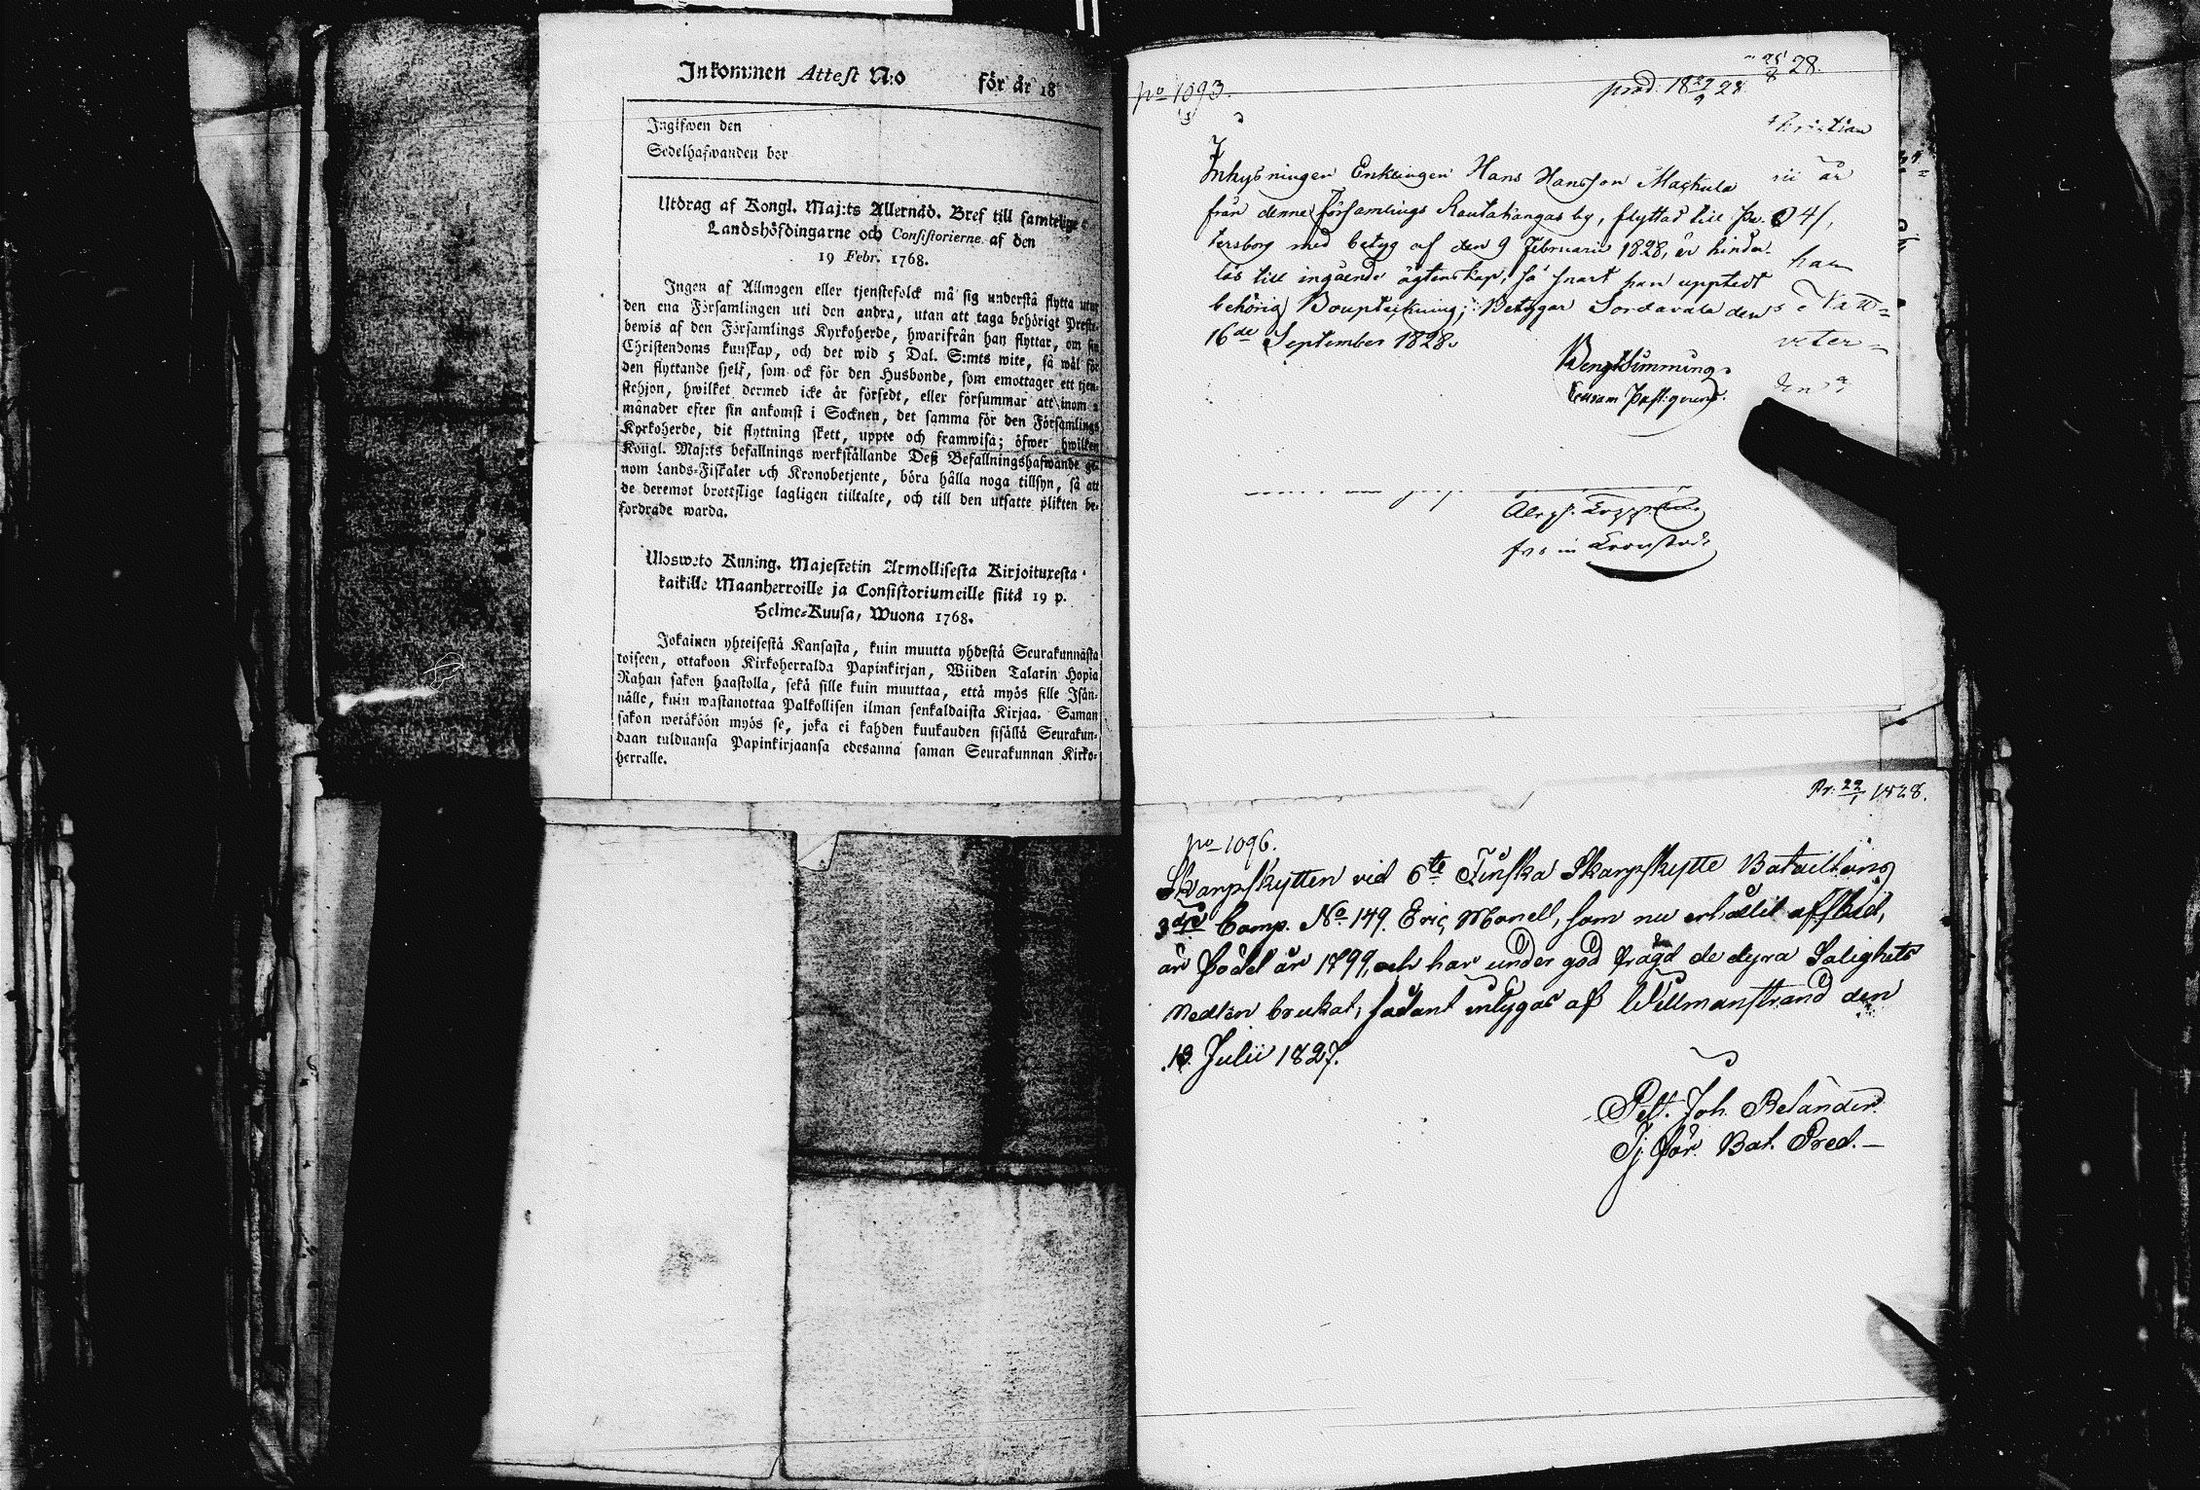 Inkommen Attest N:o för år 18
Ingifwen den
Sedelhafwanden bor
Utdrag af Kongl. Maj:ts Allernåd. Bref till samtelige
Landshöfdingarne och Consistorierne af den
19 Febr. 1768.
Ingen af Allmogen eller tjenstefolck må sig understå flytta utur
den ena Församlingen uti den andra, utan att taga behörigt Preste-
bewis af den Församlings Kyrkoherde, hwarifrån han flyttar, om sin
Christendoms kunskap, och det wid 5 Dal. S:mts wite, så wäl för
den flyttande sjelf, som ock för den Husbonde, som emottager ett tjen-
stehjon, hwilket dermed icke är försedt, eller försummar att inom 2
månader efter sin ankomst i Socknen, det samma för den Församlings
Kyrkoherde, dit flyttning skett, uppte och framwisa; öfwer hwilken
Kongl. Maj:ts befallnings werkställande Deß Befallningshafwande ge-
nom Lands-Fiskaler och Kronobetjente, böra hålla noga tillsyn, så att
de deremot brottslige lagligen tilltalte, och till den utsatte plikten be-
fordrade warda.
Ulosweto Kuning. Majestetin Armollisesta Kirjoituxesta
kaikille Maanherroille ja Consistoriumeille siitä 19 p.
Helme-Kuusa, Wuona 1768.
Jokainen yhteisestä Kansasta, kuin muutta yhdestä Seurakunnasta
toiseen, ottakoon Kirkoherralda Papinkirjan, Wiiden Talarin Hopia
Rahan sakon haastolla, sekä sille kuin muuttaa, että myös sille Isän-
nälle, kuin wastanottaa Palkollisen ilman senkaldaista Kirjaa. Saman
sakon wetäköön myös se, joka ei kahden kuukauden sisällä Seurakun-
daan tulduansa Papinkirjaansa edesanna saman Seurakunnan Kirko-
herralle.
25/8 28.
No 1093.
prod. 18 29/9 28
Inhysningen Enklingen Hans Hansson
från denne Församlings Rautakangas by, flyttad till Pe-
tersborg med betyg af den 9 Februarii 1828, är hinder-
lös till ingående ägtenskap, så snart han upptedt
behörig Bouptekning; Betygar Sordavala den
16de September 1828.
han
den
No 1096.
Pr. 22/1 1828.
Skarpskytten vid 6te Finska Skarpskytte Bataillons
3dje Comp. No 149. Eric Monell, som nu erhållit affsked,
är född år 1799, och har under god frägd de dyra Salighets
medlen brukat, sådant intygas af Willmanstrand den
13 Julii 1827.
Pet. Joh. Relander.
Tj. för. Bat. Pred.